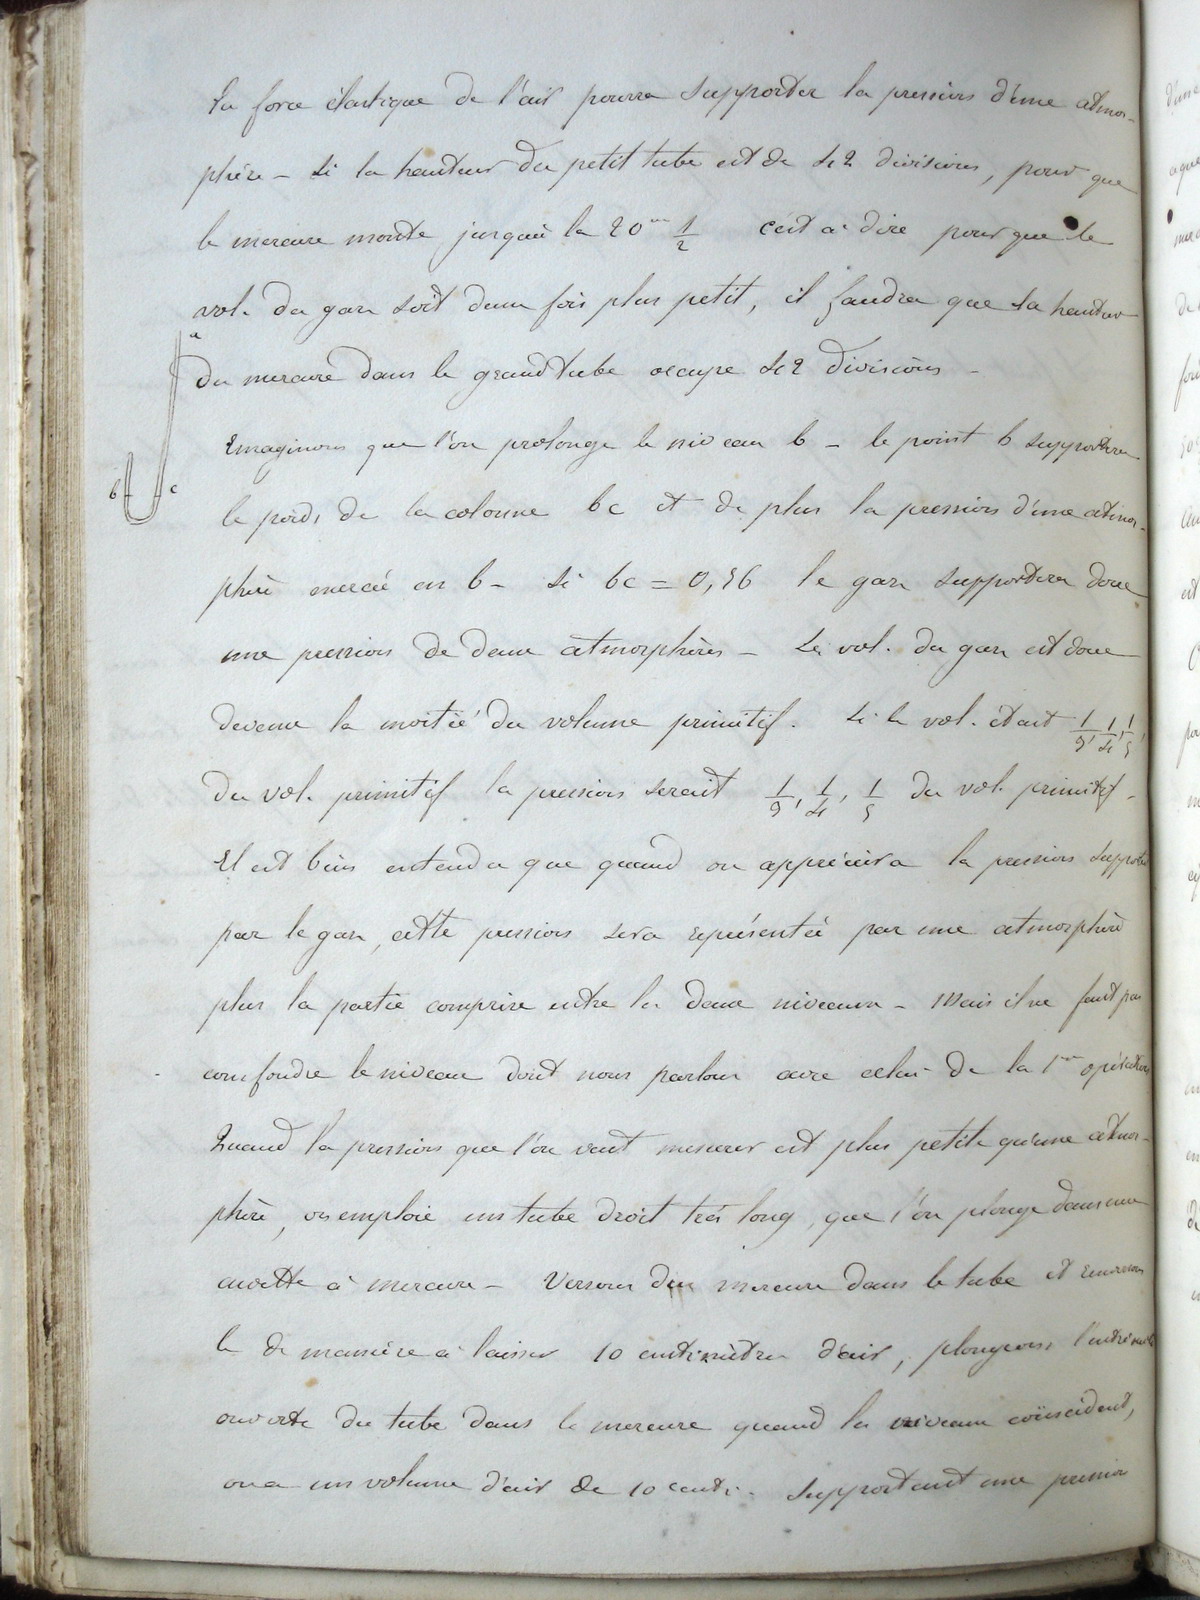 la force élastique de l'air pourra supporter la pression d'une atmos-
phère - si la hauteur du petit tube est de 42 divisions, pour que
le mercure monte jusqu'à la 20me 1/2 c'est à dire pour que le
vol. du gaz soit deux fois plus petit, il faudra que la hauteur
a
du mercure dans le grand tube occupe 42 divisions -
Imaginons que l'on prolonge le niveau b - le point b supportera
b c
le poids de la colonne bc et de plus la pression d'une atmos-
phère exercée en b - si bc = 0,76 le gaz supportera donc
une pression de deux atmosphères - Le vol. du gaz est donc
devenu la moitié du volume primitif. Si le vol. était 1/3, 1/4, 1/5,
du vol. primitif la pression serait 1/3, 1/4, 1/5 du vol. primitif -
Il est bien entendu que quand on appréciera la pression supportée
par le gaz, cette pression sera représentée par une atmosphère
plus la partie comprise entre les deux niveaux - Mais il ne faut pas
confondre le niveau dont nous parlons avec celui de la 1re opération
Quand la pression que l'on veut mesurer est plus petite qu'une atmos-
phère, on emploie un tube droit très long, que l'on plonge dans une
cuvette à mercure - Versons du mercure dans le tube et
le de manière à laisser 10 centimètres d'air, plongeons l'extrémité
ouverte du tube dans le mercure quand les niveaux coïncident,
on a un volume d'air de 10 centi. supportant une pression